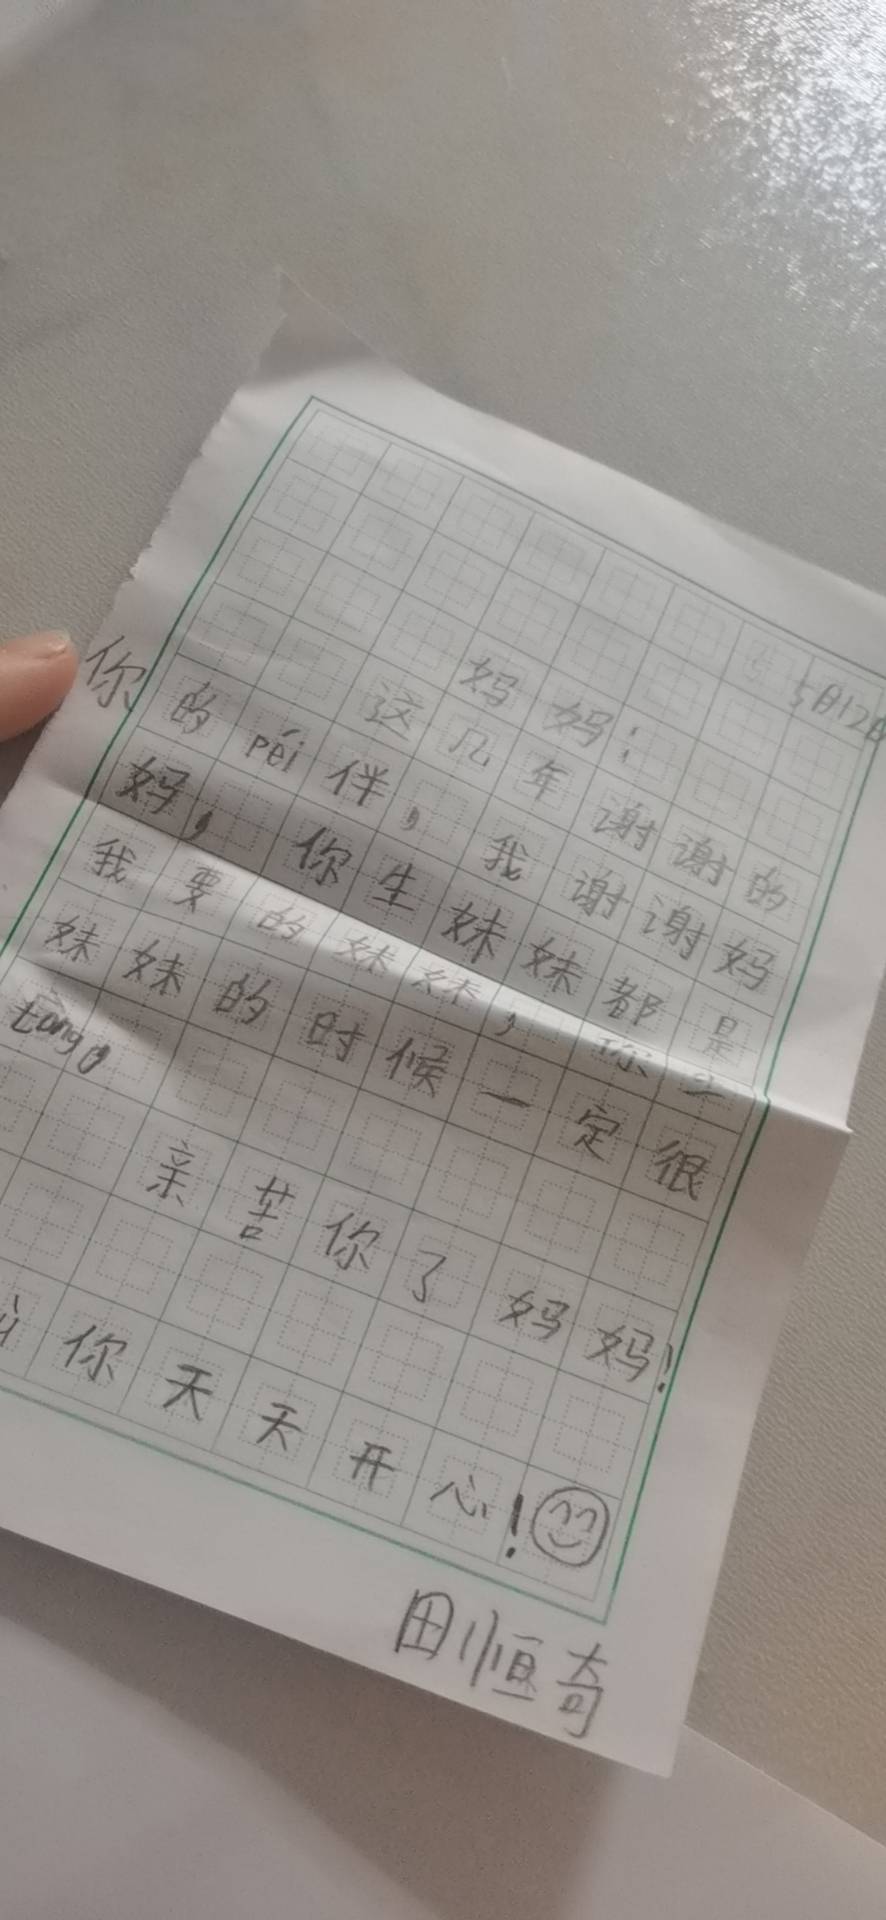 5月12日
妈妈：
这几年谢谢的
你的péi伴，我谢谢妈
妈，你生妹妹都是
我要的妹妹，你生
妹妹的时候一定很
tòng。
亲苦你了妈妈！
你天天开心！
田恒奇